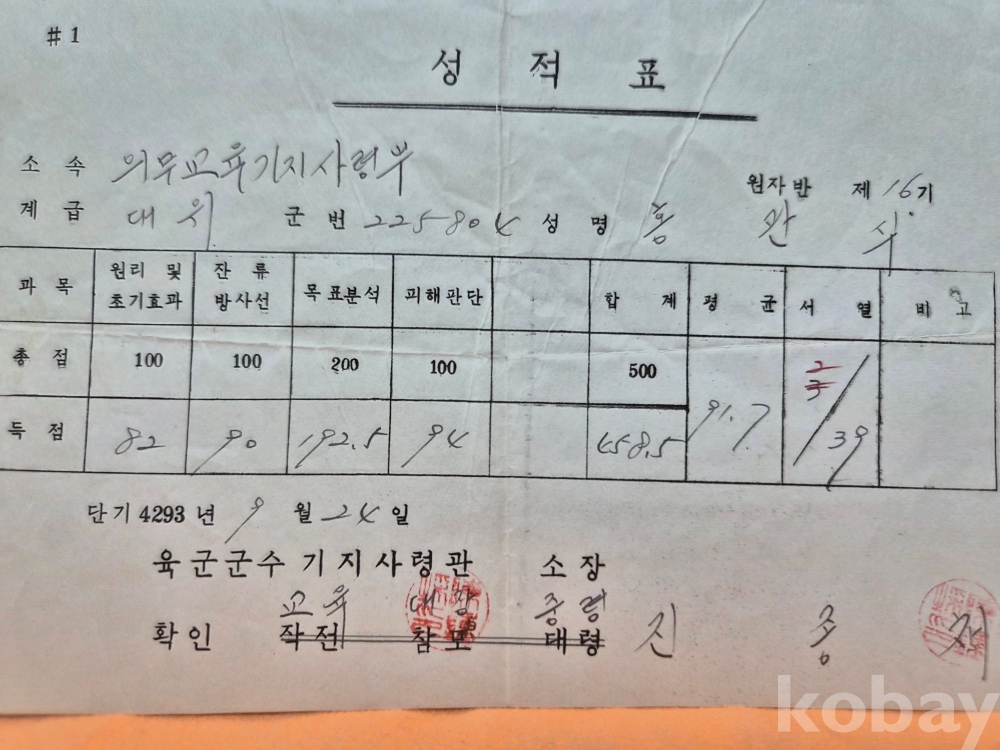 #1
성 적 표
소 속 의무교육기지사령부
원자반 제 16기
계 급 대위 군 번 225804 성 명 홍 완 식
과 목 원리 및 초기효과 잔 류 방사선 목표분석 피해판단 합 계 평 균 서 열 비 고
총 점 100 100 200 100 500
득 점 82 90 192.5 94 458.5 91.7 2/39
단기 4293 년 9 월 24 일
육군군수기지사령관 소장
교육 대장 중령
확인 작전 참모 대령 진 종
kobay